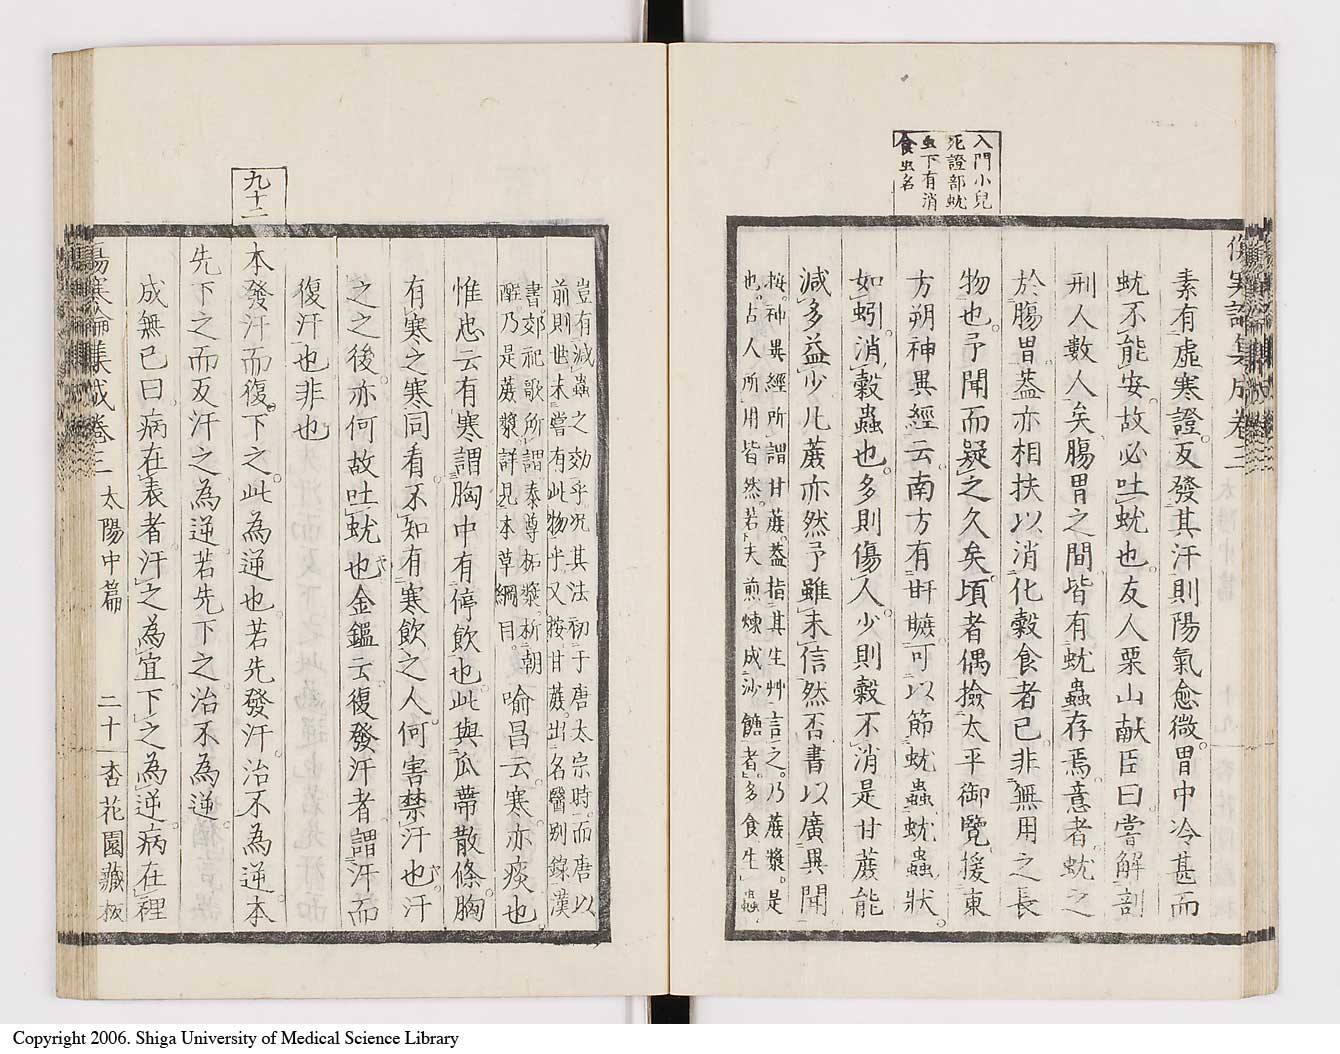 傷寒論集成卷三
入門小兒
死證部蚘
虫下有消
食虫名
素有虛寒證反發其汗則陽氣愈微胃中冷甚而
蚘不能安故必吐蚘也友人栗山献臣曰嘗解剖
刑人數人矣腸胃之間皆有蚘蟲存焉意者蚘之
於腸胃葢亦相扶以消化穀食者已非無用之長
物也予聞而疑之久矣頃者偶撿太平御覽援東
方朔神異經云南方有甘䗪可以節蚘蟲蚘蟲狀
如蚓消穀蟲也多則傷人少則穀不消是甘䗪能
減多益少凡䗪亦然予雖未信然否書以廣異聞
按神異經所謂甘䗪葢指其生艸言之乃䗪漿是
也古人所用皆然若夫煎煉成沙餹者多食生蟲
豈有減蟲之効乎况其法初于唐太宗時而唐以
前則世未嘗有此物乎又按甘䗪出名醫別錄漢
書郊祀歌所謂泰尊柘漿析朝
酲乃是䗪漿詳見本草綱目 喻昌云寒亦痰也
惟忠云有寒謂胸中有停飲也此與瓜蒂散條胸
有寒之寒同看不知有寒飲之人何害禁汗也汗
之之後亦何故吐蚘也金鑑云復發汗者謂汗而
復汗也非也
九十二
本發汗而復下之此為逆也若先發汗治不為逆本
先下之而反汗之為逆若先下之治不為逆
成無已曰病在表者汗之為宜下之為逆病在裡
傷寒論集成卷三 太陽中篇 二十 杏花園藏板
Copyright 2006. Shiga University of Medical Science Library